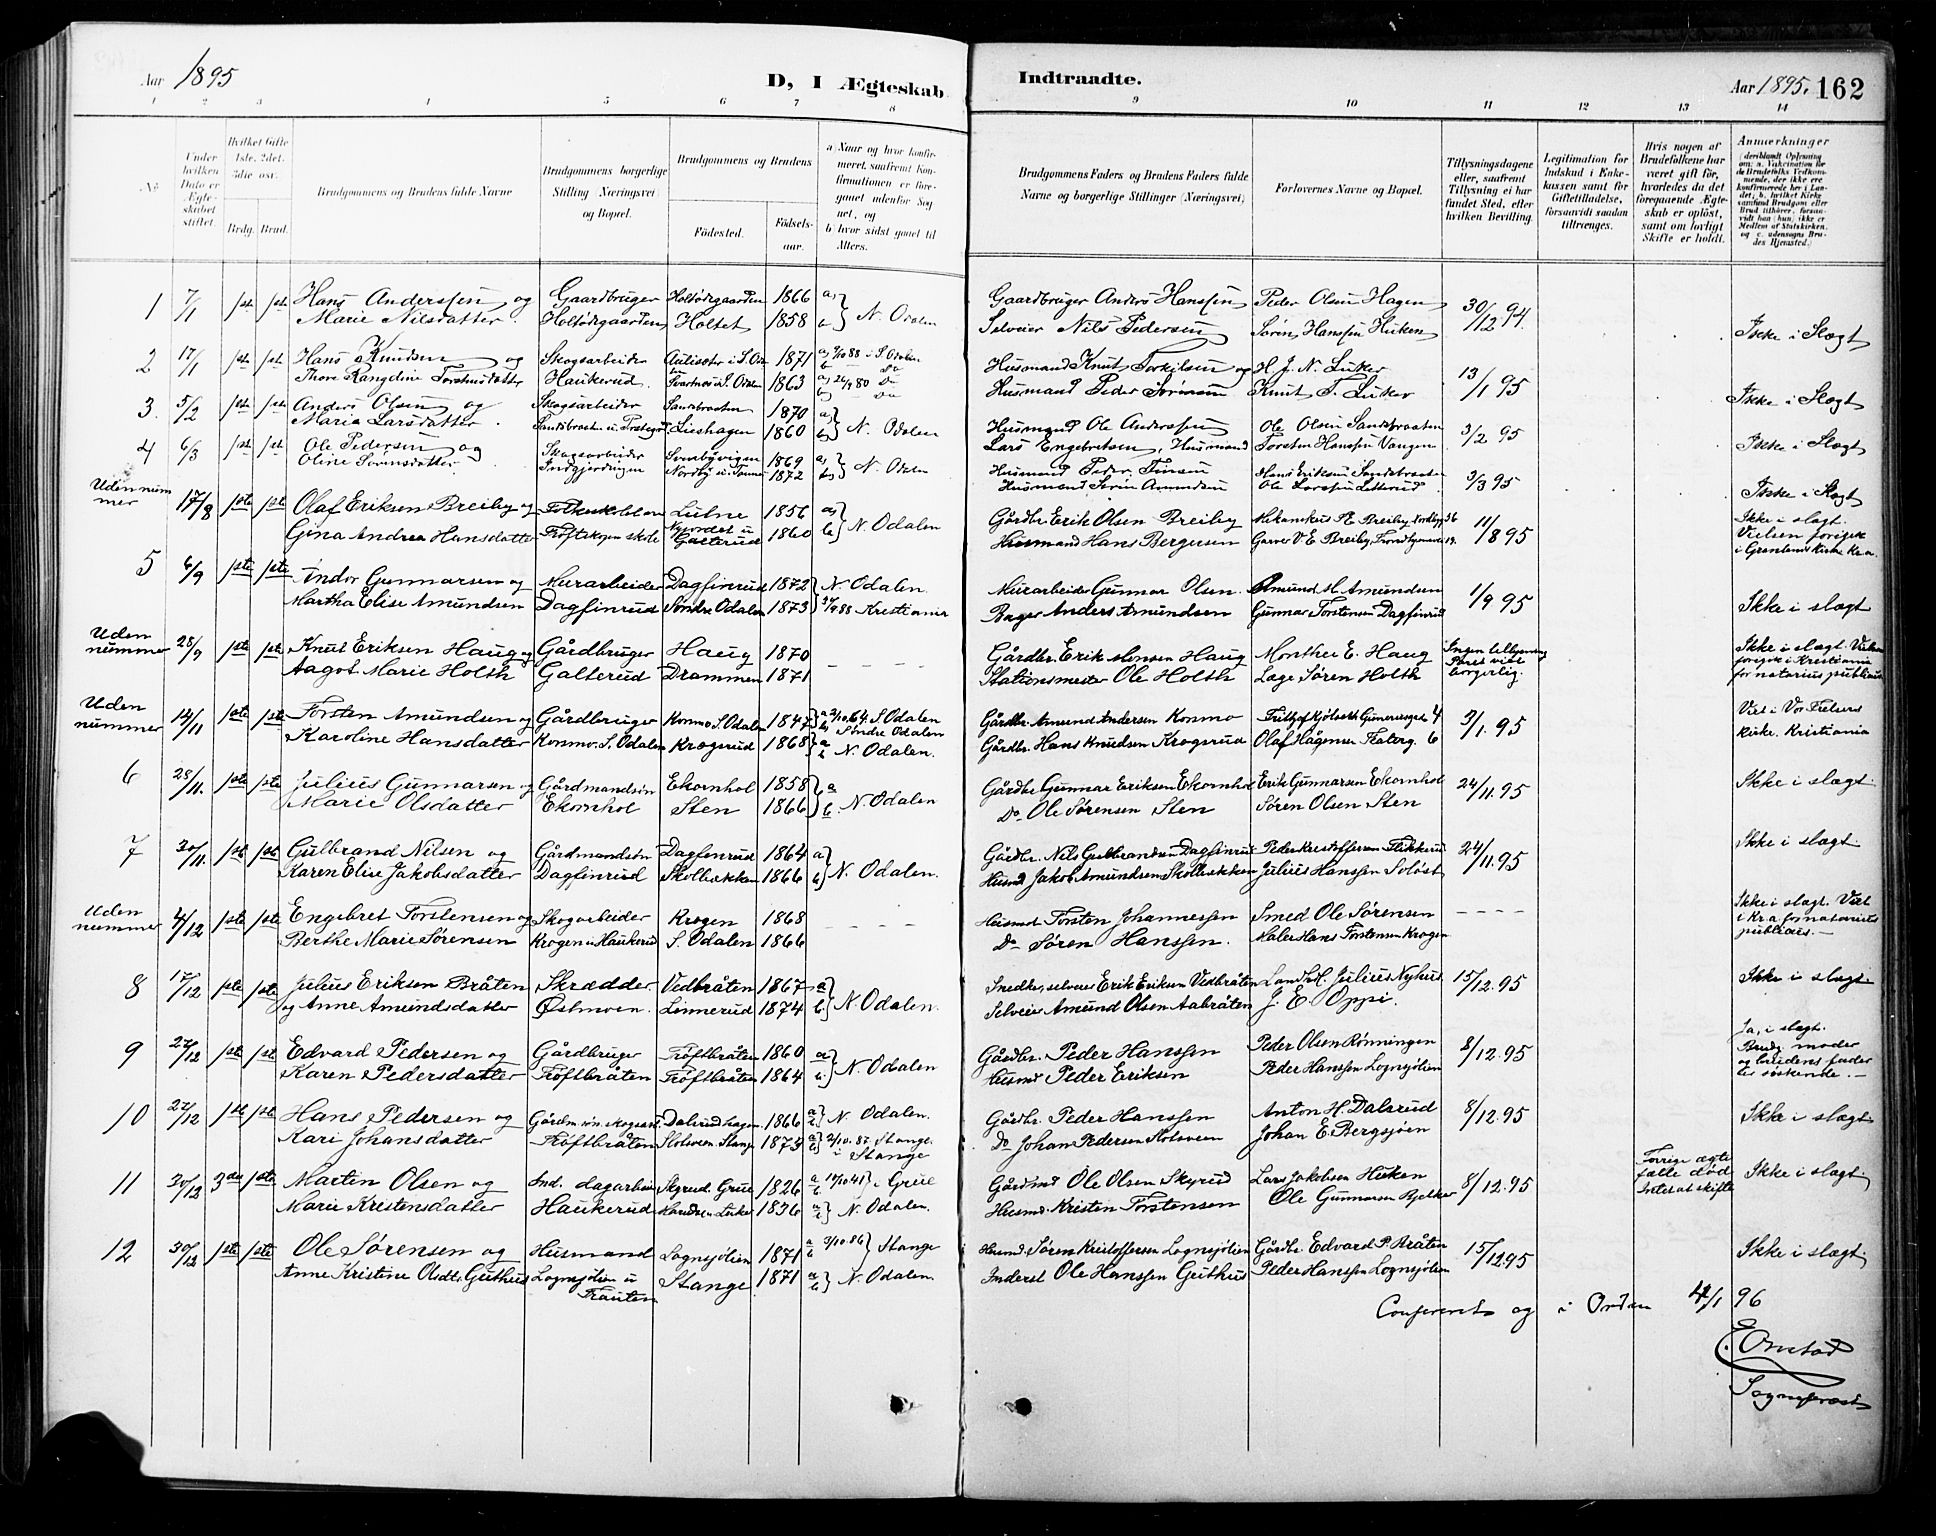 Aar 1895 D, I Ægteskab Indtraadte. Aar 1895. 162
1 2 3 4 5 6 7 8 9 10 11 12 13 14
No
Under hvilken Dato er Ægteskabet stiftet.
Hvilket Gifte 1ste, 2det, 3die osv.
Brdg. Brud.
Brudgommens og Brudens fulde Navne
Brudgommens borgerlige Stilling (Næringsvei) og Bopæl.
Brudgommens og Brudens
Fødested. Fødselsaar.
a) Naar og hvor konfirmeret, saafremt Konfirmationen er foregaaet udenfor Sognet, og
b) hvor sidst gaaet til Alters.
Brudgommens Faders og Brudens Faders fulde Navne og borgerlige Stillinger (Næringsvei)
Forlovernes Navne og Bopæl.
Tillysningsdagene eller, saafremt Tillysning ei har fundet Sted, efter hvilken Bevilling.
Legitimation for Indskud i Enkekassen samt for Giftetilladelse, forsaavidt saadan tiltrænges.
Hvis nogen af Brudefolkene har været gift før, hvorledes da det foregaaende Ægteskab er opløst, samt om lovligt Skifte er holdt.
Anmærkninger
1 7/1 1ste 1ste Hans Anderssen og Gaardbruger Holtødegaarden 1866 a) N. Odalen Gaardbruger Anders Hanssen Peder Olsen Hagen 30/12 94 Ikke i Slægt
Marie Nilsdatter. Holtødegaarden Holtet 1858 b) Selveier Nils Pedersen Søren Hanssen Huken
2 17/1 1ste 1ste Hans Knudsen og Skogsarbeider i S. Od 1871 a) 9/10 88 i S. Odalen Husmand Knut Torkilsen og H. J. N. Lutker 13/1 95 Ikke i Slægt
Thore Rangdine Torstensdatter Haukerud. S. Odalen 1863 Husmand Peder Sørensen Knut T. Lutker
3. 5/2 1ste 1ste Anders Olsen og Skogsarbeider Sandsbraaten 1870 a) N. Odalen Husmand Ole Anderssen Ole Olsen Sandsbraaten 3/2 95 Ikke i Slægt
Maria Larsdatter. Sandsbraaten Lieshagen 1860 b) Lars Engebretsen, Husmand Torsten Hanssen Vangen
4 6/3 1ste 1ste Ole Pedersen og Skogsarbeider Svenbyvigen 1869 a) N. Odalen Husmand Peder Hans Eriksen Sandsbraaten 3/3 95 Ikke i Slægt
Oline Sørensdatter. Indgjerdingen Nordby 1872 b) Husmand Søren Amundsen Ole Larssen
Uden nummer 17/8 1ste 1ste Olaf Eriksen Breiby og Lutne 1856 a) N. Odalen Gårdbr. Erik Olsen Breiby Mekanikus P. E. Breiby 11/8 95 Ikke i slægt. Vielsen foregik i Grønlands kirke Kr.a.
Gina Andrea Hansdatter Trøftskogen skole Galterud 1860 b) Husmand Hans Bergersen Garver V. E. Breiby, Trondhjemsvei 19.
5 6/9 1ste 1ste Indor Gunnarsen og Murarbeider Dagfinrud 1872 N. Odalen. Murarbeider Gunnar Olsen. Amund H. Amundsen 1/9 95 Ikke i slægt
Martha Elise Amundsen Dagfinrud Søndre Odalen 1873 88 Kristiania Bager Anders Amundsen Gunnar Torstensen Dagfinrud
Uden nummer 28/9 1ste 1ste Knut Eriksen Haug og Gårdbruger Haug 1870 — — — Gårdbr. Erik Monsen Haug Monthei E. Haug Ingen tillysning Paret viet borgerlig. Ikke i slægt. Vielsen foregik i Kristiania for notarius publicus
Aagot Marie Holth Galterud Drammen 1871 Stationsmester Ole Holth Læge Søren Holth
Uden nummer 14/11 1ste 1ste Torsten Amundsen og Gårdbruger Konmo S. Odalen 1847 a 2/10 64. S. Odalen b Søndre Odalen Gårdbr. Amund Andersen Konmo Frithjof Kjølseth 4 3/1. 95 Viet i Vor Frelsers kirke. Kristiania
Karoline Hansdatter Konmo. S. Odalen Krogsrud 1868 a b N. Odalen. Gårdbr. Hans Knudsen Krogsrud Olaf Hågensen Teaterg. 6
6 28/11. 1ste 1ste Julius Gunnarsen og Gårdmandsøn Ekornhol 1858 a N. Odalen Gårdbr. Gunnar Eriksen Ekornhol Erik Gunnarsen Ekornhol 24/11. 95 Ikke i slægt.
Marie Olsdatter Ekornhol Sten 1866 b Do. Ole Sørensen Sten Søren Olsen Sten
7 30/11. 1ste 1ste Gulbrand Nilsen og Gårdmandsøn Dagfinrud 1864 a N. Odalen. Gårdbr. Nils Gulbrandsen Dagfinrud Peder Kristoffersen Flikkerud 24/11. 95 Ikke i slægt.
Karen Elise Jakobsdatter Dagfinrud Skolbækken 1866 b Husmd Jakob Amundsen Skolbækken Julius Hanssen Soløst
Uden nummer 4/12 1ste 1ste Engebret Torstensen og Skogarbeider Krogen 1868 — — — Husmd Torsten Johannessen Smed Ole Sørensen — — — — Ikke i slægt. Viet i Kr.a for notarius publicus. —
Berthe Marie Sørensen Krogen u. Haukerud S. Odalen 1866 Do Søren Hanssen. Maler Hans Torstensen Krogen
8 17/12 1ste 1ste Julius Eriksen Bråten Skrædder. Vedbråten 1867 a N. Odalen. Snedker, selveier Erik Eriksen Vedbråten Landhdl. Julius Nyhus 15/12. 95 Ikke i slægt.
og Anne Amundsdatter Østmoen. Lennerud 1874 b Selveier Amund Olsen Aabråten J. E. Oppi.
9 27/12 1ste 1ste Edvard Pedersen og Gårdbruger Trøftbråten 1860 a N. Odalen Gårdbr. Peder Hanssen Peder Olsen Rønningen 8/12. 95 Ja, i slægt. Brudg. moder og brudens fader er søskende. —
Karen Pedersdatter Trøftbråten Trøftbråten 1864 b Husmd Peder Eriksen Peder Hanssen Lognsjølien
10 27/12 1ste 1ste Hans Pedersen og Dalsrud 1866 N. Odalen. Gårdbr. Peder Hanssen Anton H. Dalsrud 8/12. 95 Ikke i slægt
Kari Johansdatter Trøftbråten Slotsveen Stange 1873 a 2/10. 87. Stange. b i Stange Do Johan Pedersen Slotsveen Johan E. Bergsjøen
11 30/12 3die 1ste Martin Olsen og Ind. dagarbeider Skyrud. Grue 1826 a 17/10 41 i Grue Gårdmd Ole Olsen Skyrud Lars Jakobsen Huken 8/12. 95 Forrige ægtefælle død Intet at skifte Ikke i slægt.
Marie Kristensdatter Haukerud 1836 a b N. Odalen. Husmd. Kristen Torstensen Ole Gunnarsen Bjelker
12 30/12 1ste 1ste Ole Sørensen og Husmand Lognsjølien 1871 a 3/10. 86 Stange Husmd. Søren Kristoffersen Lognsjølien Gårdbr. Edvard P. Bråten 15/12 95 Ikke i slægt.
Anne Kristine Olsdtr. Guthus Lognsjølien u Trauten Stange 1871 a b N. Odalen Inderst Ole Hanssen Guthus Peder Hanssen Lognsjølien
Confereret og i Orden 4/1 96
E. Onstad
Sogneprest